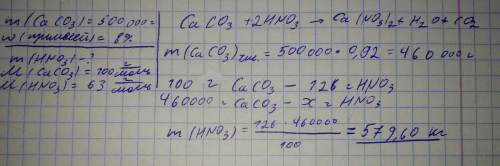 m(CaCO3) = 500000 г
w(примесей) = 8%
m(HNO3) - ?
M(CaCO3) = 100 г/моль
M(HNO3) = 63 г/моль
CaCO3 + 2HNO3 → Ca(NO3)2 + H2O + CO2
m(CaCO3)чис. = 500000 * 0,92 = 460 000 г
100 г CaCO3 — 126 г HNO3
460000 г CaCO3 — x г HNO3
m(HNO3) = 126 · 460000 / 100 = 579,60 кг